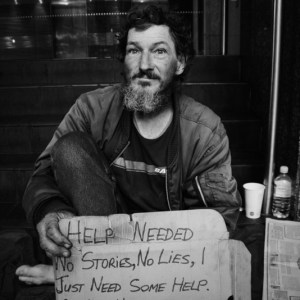 Help Needed
No Stories, No Lies, I
Just Need Some Help.